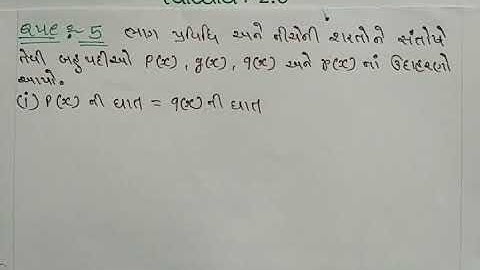 ઉપર :- 5 ભાગ પ્રવિધિ અને નીચેની શરતોને સંતોષે
તેવી બહુપદીઓ P(x), g(x), q(x) અને r(x) નાં ઉદાહરણો
આપો.
(i) P(x) ની ઘાત = q(x) ની ઘાત